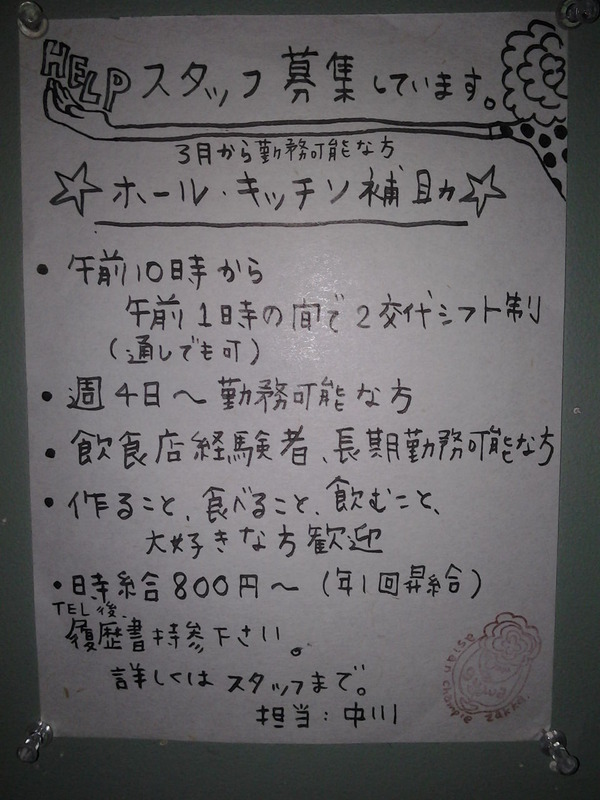 HELP スタッフ募集しています。
3月から勤務可能な方
ホール・キッチン補助
• 午前10時から
午前1時の間で2交代シフト制
(通しでも可)
• 週4日〜勤務可能な方
• 飲食店経験者、長期勤務可能な方
• 作ること、食べること、飲むこと、
大好きな方歓迎
• 時給800円〜(年1回昇給)
TEL後、
履歴書持参下さい。
詳しくはスタッフまで。
担当:中川
asian